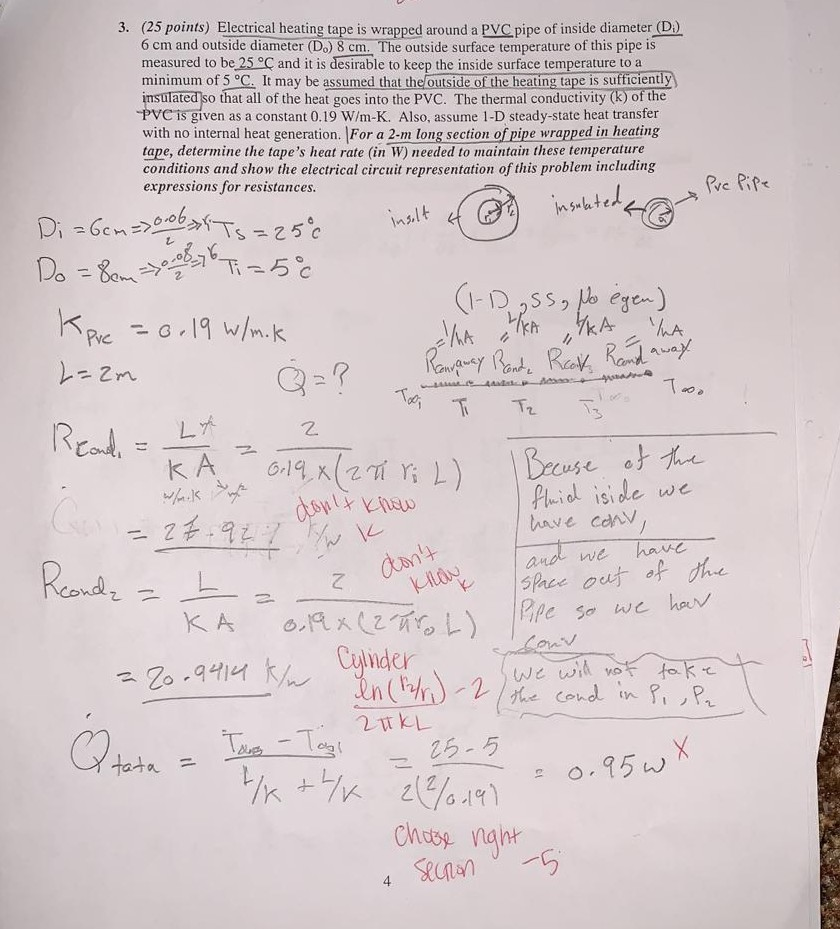 3. (25 points) Electrical heating tape is wrapped around a PVC pipe of inside diameter (Dᵢ)
6 cm and outside diameter (Dₒ) 8 cm. The outside surface temperature of this pipe is
measured to be 25 °C and it is desirable to keep the inside surface temperature to a
minimum of 5 °C. It may be assumed that the outside of the heating tape is sufficiently
insulated so that all of the heat goes into the PVC. The thermal conductivity (k) of the
PVC is given as a constant 0.19 W/m-K. Also, assume 1-D steady-state heat transfer
with no internal heat generation. For a 2-m long section of pipe wrapped in heating
tape, determine the tape's heat rate (in W) needed to maintain these temperature
conditions and show the electrical circuit representation of this problem including
expressions for resistances.
insilt
insulated
Pvc Pipe
Di = 6cm => 0.06/2 Ts = 25°c
Do = 8cm => 0.08/2 Ti = 5°c
(1-D, SS, No egen)
K Pvc = 0.19 W/m.k
= 1/hA = L/KA = L/KA = 1/hA
L = 2m
Q̇ = ?
T∞i T1 T2 T3 T∞o
Rcond1 = L/KA = 2/0.19 x (2π ri L)
W/m.k
don't know
K
Becuse of the
fluid iside we
have conv,
and we have
space out of the
Pipe so we hav
conv
we will not take
the cond in P1, P2
Rcond2 = L/KA = 2/0.19 x (2π ro L)
don't
know
k
= 20.9414 k/w
Cylinder
ln(r2/r1)/2πKL - 2
Q̇ tata = /L/K + L/K = 25-5/2(2/0.19) = 0.95w X
Chose right
section -5
4